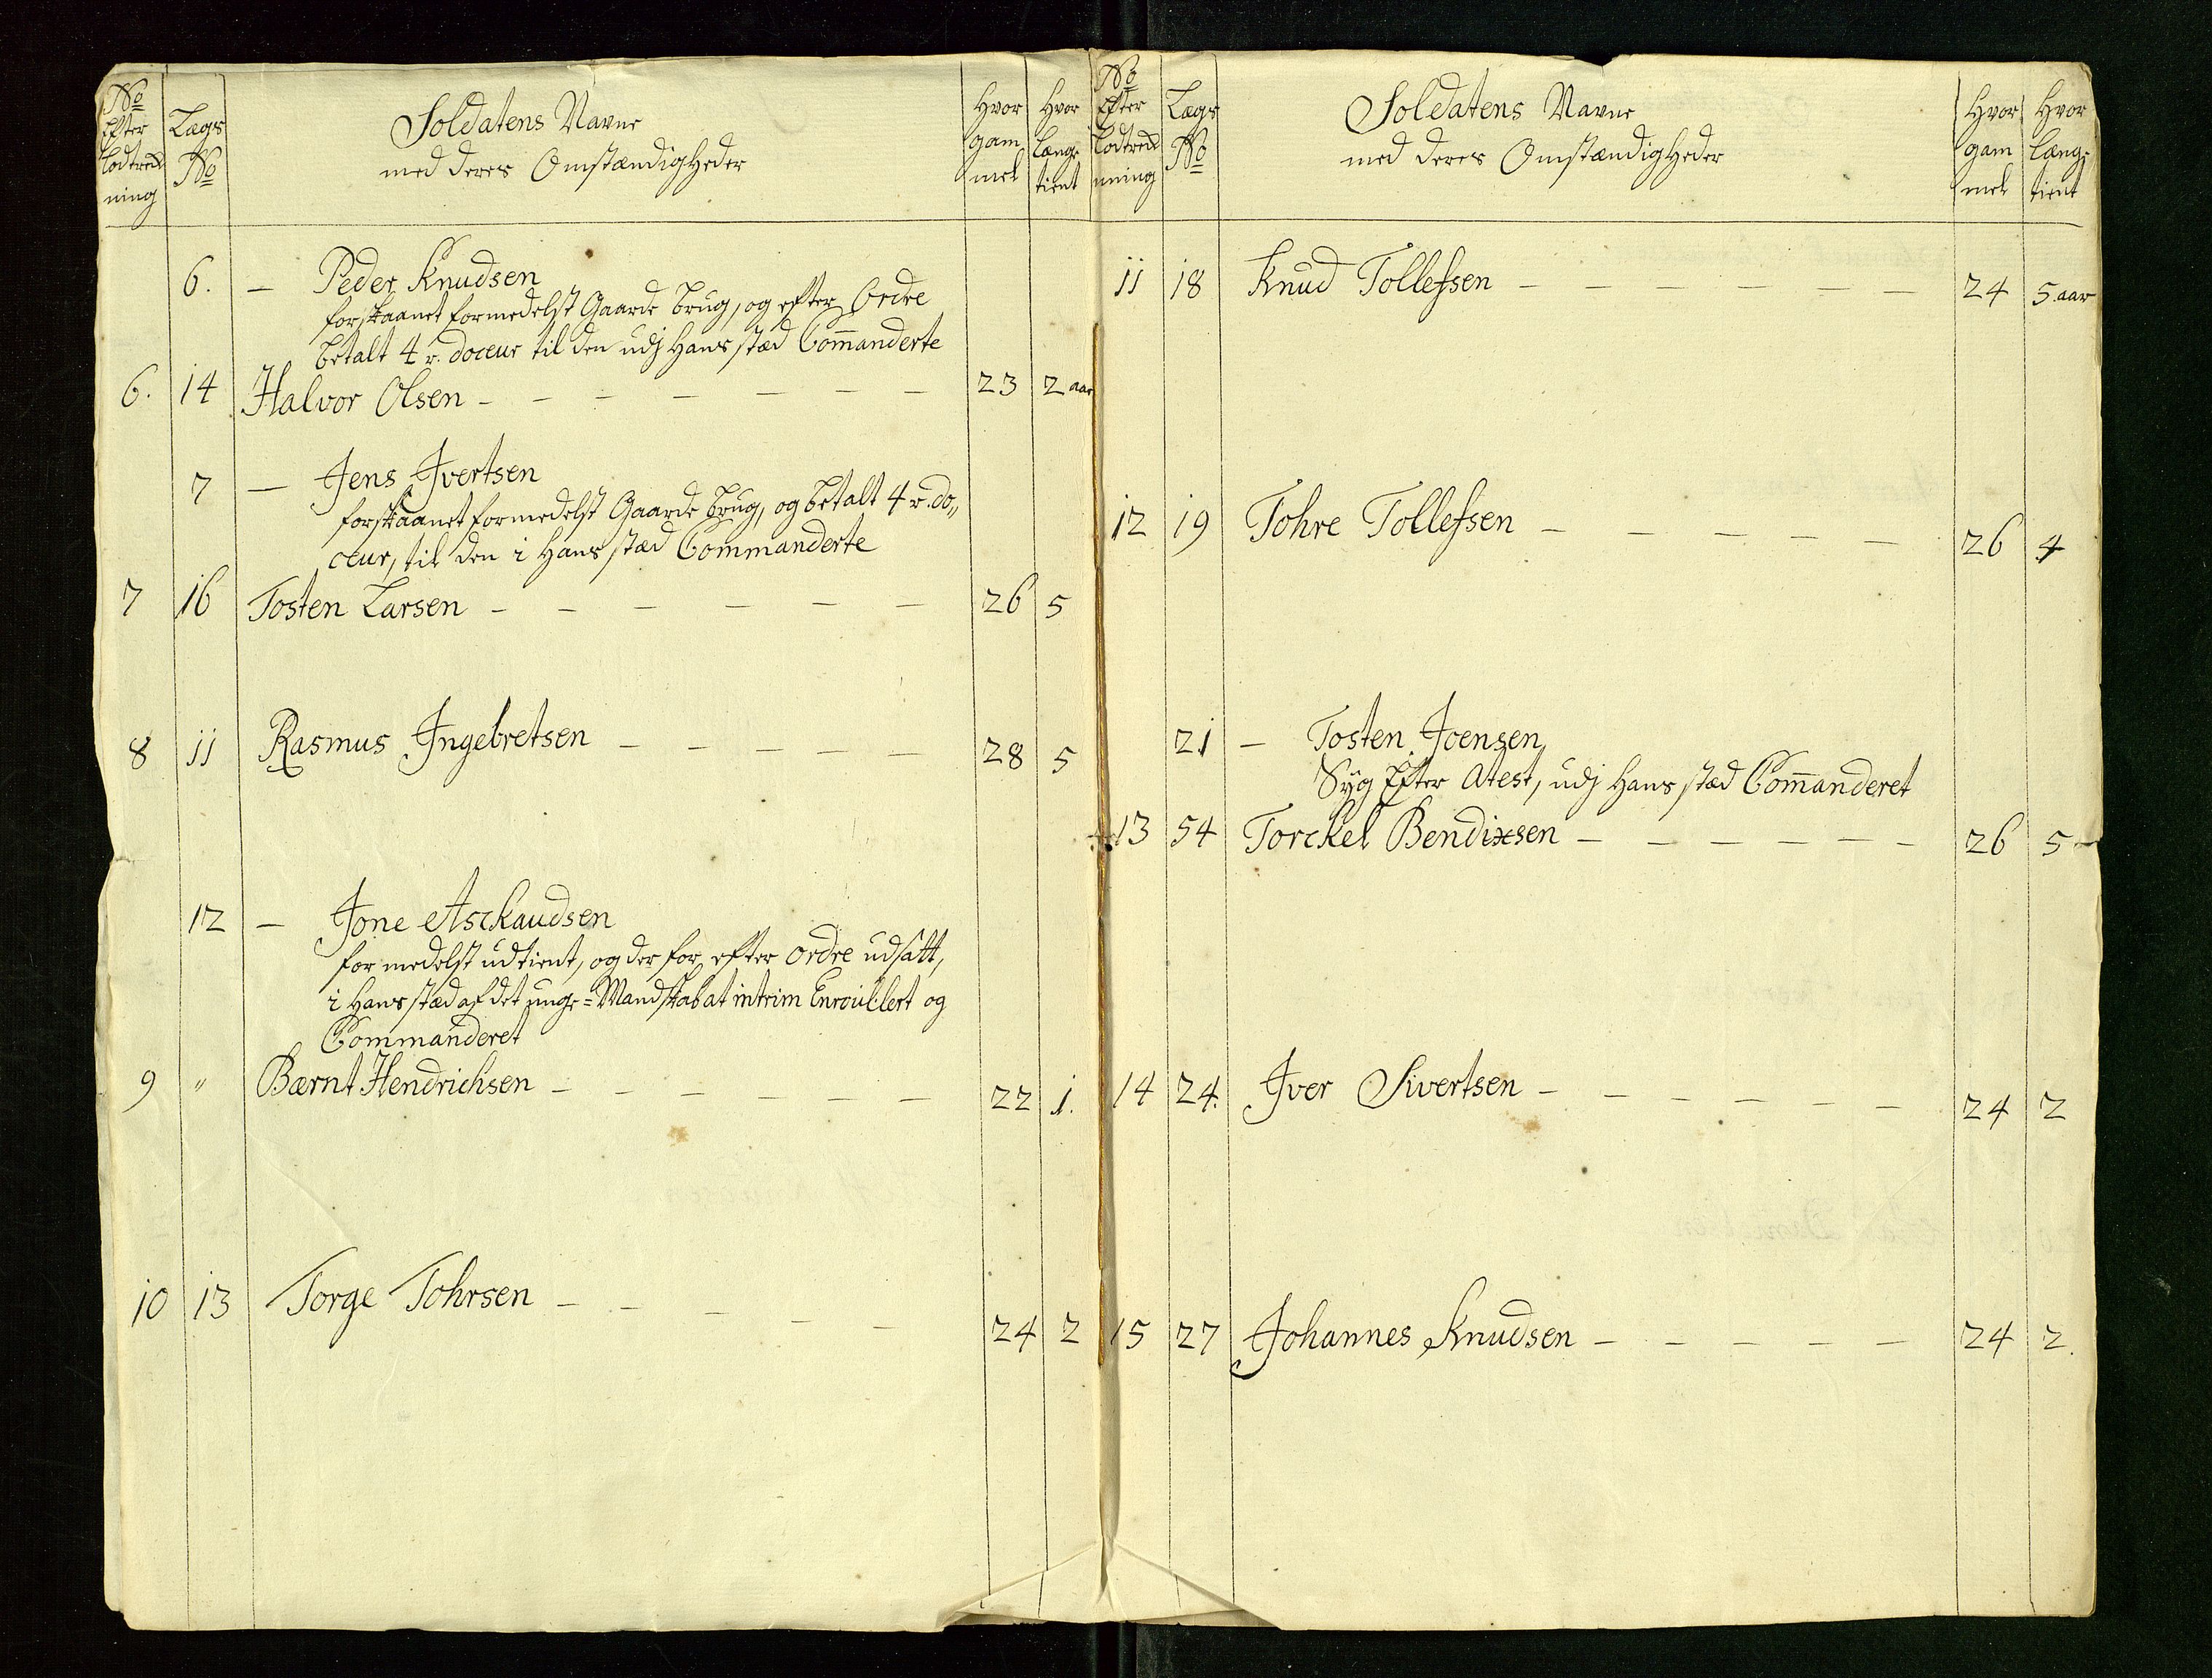 No
Efter
Lodtred
ning
Lægs
No
Soldatens Navne
med deres Omstændigheder
Hvor
gam
mel
Hvor
længe
tient
6. — Peder Knudsen
forskaanet formedelst Gaarde brug, og efter Ordre
betalt 4 r. doceur til den udj Hans stæd Com̄anderte
6. 14 Halvor Olsen - - - - - - - 23 2 aar
7 — Jens Jvertsen
forskaanet formedelst Gaarde brug, og betalt 4 r. do„
ceur, til den i Hans stæd Commanderte
7 16 Tosten Larsen - - - - - - 26 5
8 11 Rasmus Jngebretsen - - - - - 28 5
12 — Jone Asckaudsen
for medelst udtient, og der for, efter Ordre udsatt,
i Hans stæd af det unge=Mandskab at intrim Enroullert og
Commanderet
9 " Bærnt Hendrichsen - - - - - - 22 1.
10 13 Torge Tohrsen - - - - - 24 2
No
Efter
Lodtred
ning
Lægs
No
Soldatens Navne
med deres Omstændigheder
Hvor
gam
mel
Hvor
længe
tient
11 18 Knud Tollefsen - - - - - - 24 5 aar
12 19 Tohre Tollefsen - - - - - 26 4
21 — Tosten Joensen,
Syg Efter Atest, udj Hans stæd Com̄anderet
13 54 Torckel Bendixsen - - - - - - 26 5 -
14 24. Jver Sivertsen - - - - - - 24 2
15 27 Johannes Knudsen - - - - - 24 2.